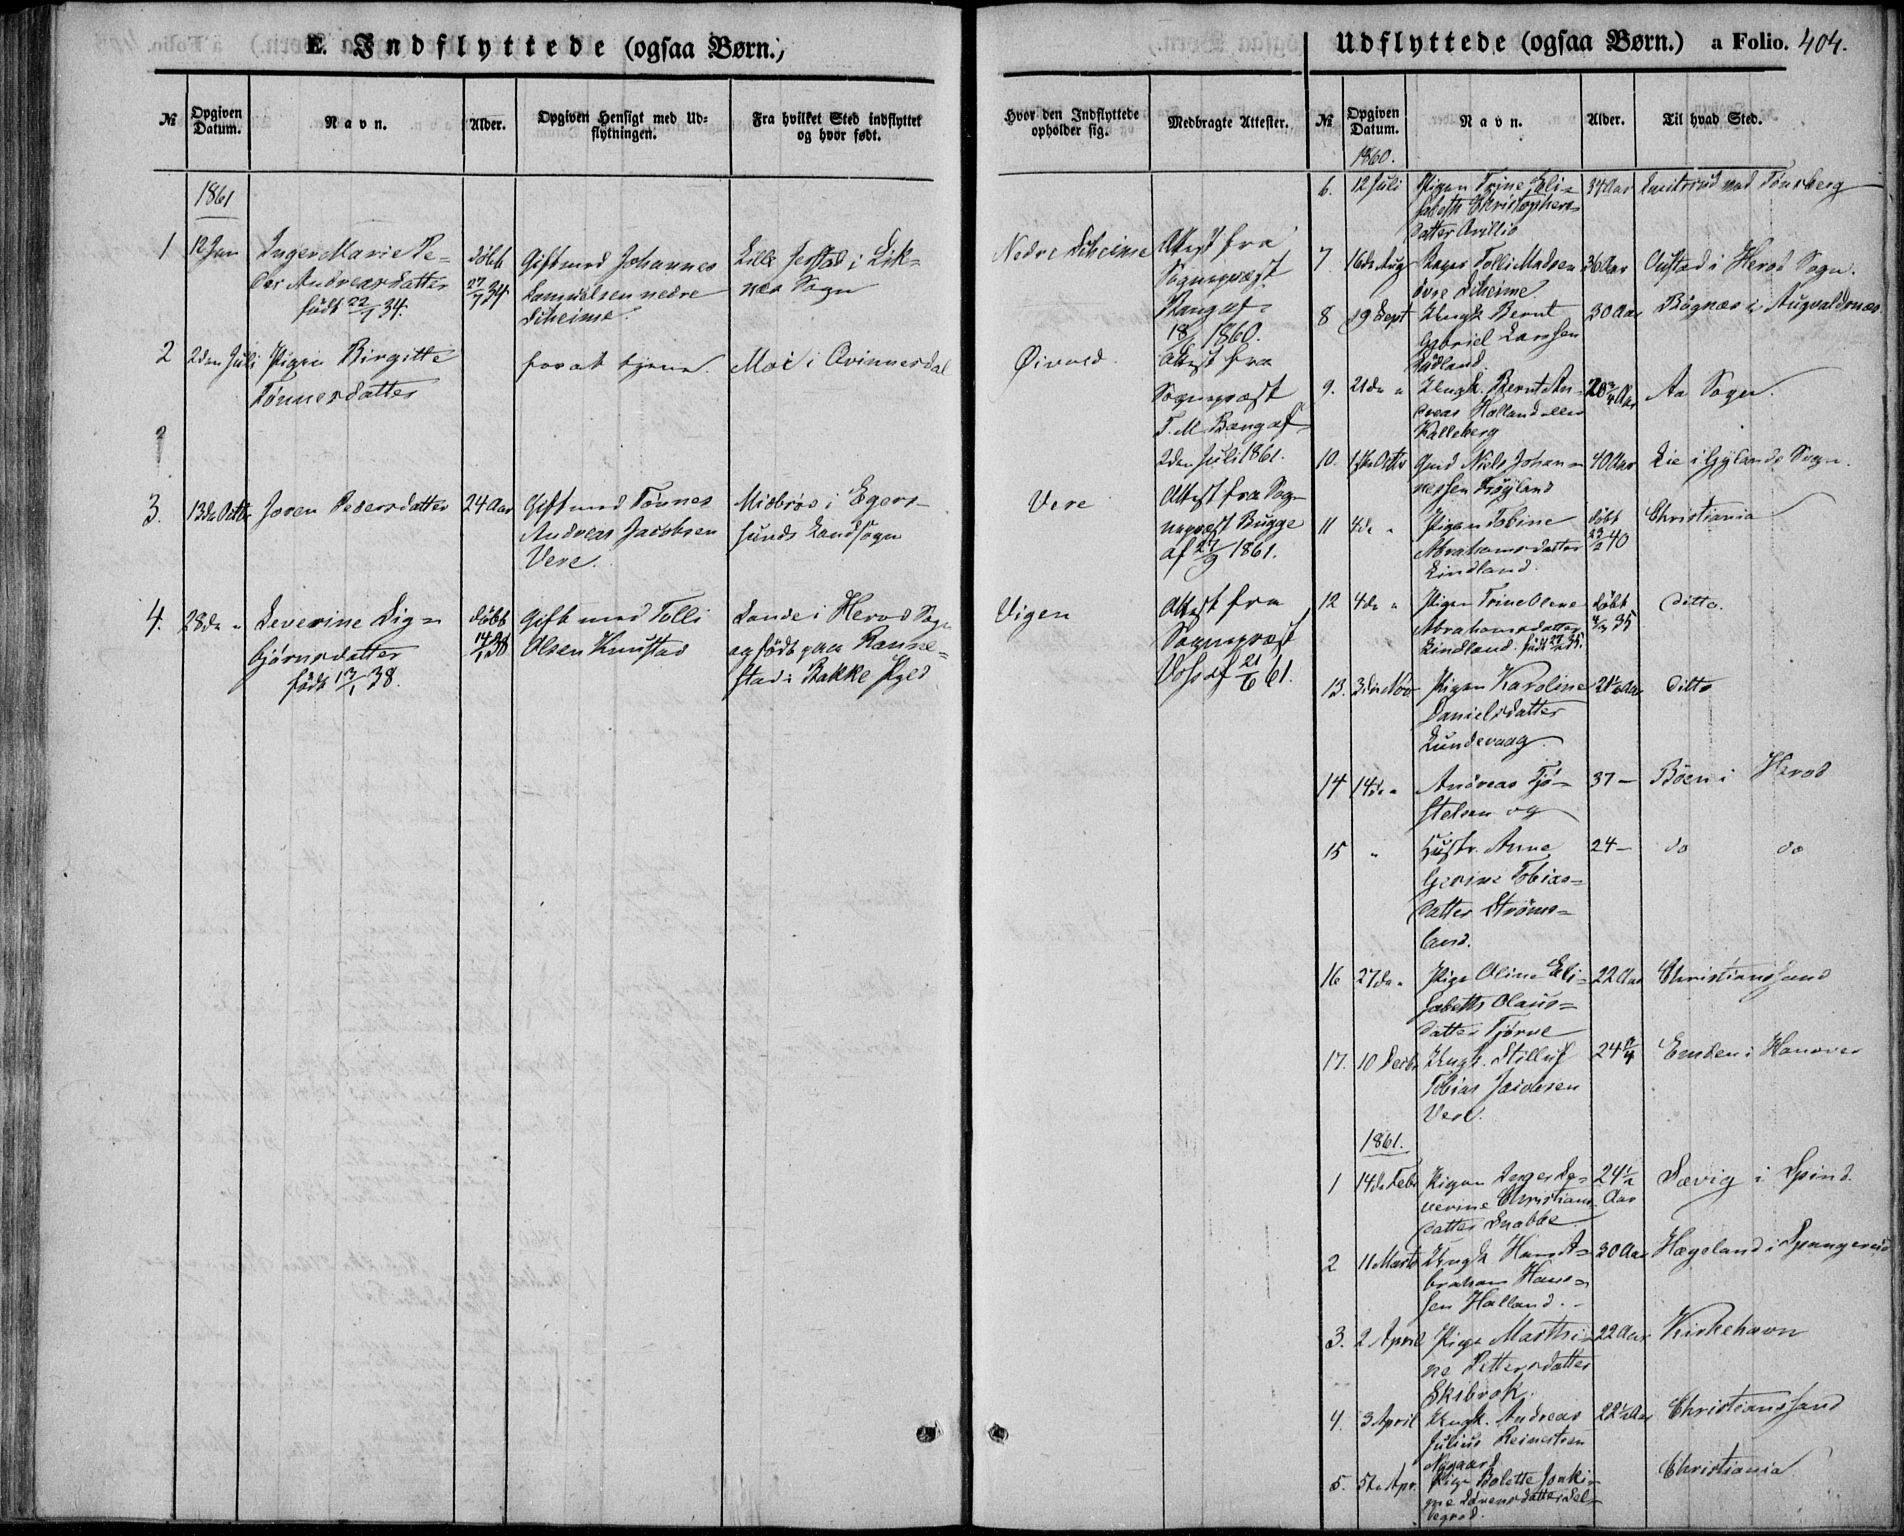 E. Indflyttede (ogsaa Børn.)
№
Opgiven Datum.
Navn.
Alder.
Opgiven Hensigt med Ud-
flytningen.
Fra hvilket Sted indflyttet
og hvor født.
Hvor den Indflyttede
opholder sig.
Medbragte Attester.
1861
1 12 Jan Inger Marie Pe-
der Andreasdatter
født 22/1 34.
døbt
27/7 34
Gift med Johannes
Samuelsen nedre
Lille Jerstad i Lik-
nes Sogn
Attest fra
Sognepræst
Bang af
18/6 1860.
2 2den Juli Pigen Birgitte
Tønnesdatter
for at tjene.
Moi i Qvinnesdal
Attest fra
Sognepræst
T. M. Bang af
2den Juli 1861.
3. 13de Octbr Joren Pedersdatter
24 Aar
Gift med Tønnes
Andreas Jacobsen
Vere.
Midbrød i Egers-
sunds Landsogn
Vere
Attest fra Sog-
nepræst Bugge
af 27/9 1861.
4. 28de " Severine Sig-
bjørnsdatter
født 17/1 38.
døbt
14/1 38
Gift med Tolli
Olsen Knustad
Lande i Herod Sogn
og født paa Ranne-
stad i Bakke Pgld
Vigen
Attest fra
Sognepræst
Voss af 21/6 61.
Udflyttede (ogsaa Børn.) a Folio. 404.
№
Opgiven Datum.
Navn.
Alder.
Til hvad Sted.
1860.
6. 12 Juli Pigen Trine Eli-
sabeth Christophers-
datter
34 Aar
ved Tønsberg
7 16de Aug Tolli Madsen
øvre
36 Aar
i Herod Sogn.
8 19 Sept Ungk Bernt
Gabriel Larsen
30 Aar
Bøgnæs i Augvaldsnæs
9. 21de " Ungk. Bernt An-
dreas Halland eller
Kalleberg
20 3/4 Aar
Aa Sogn.
10. 1ste Octbr Gmd Niels Johan-
nessen Frøyland
40 Aar
Lie i Gylands Sogn.
11 4de " Pigen Tobine
Abrahamsdatter
Lindland.
døbt
23/2 40
Christiania
12 4de " Pigen Trine Olene
Abrahamsdatter
Lindland. født
døbt
35
ditto.
13. 3die Nov Pigen Karoline
Danielsdatter
Lundevaag.
21 1/2 Aar
ditto
14 14de " Andreas Tjø-
stelsen og
37 –
Böen i Herod
15 " Hustr. Anne
Gjerine Tobias-
datter Strøms-
land.
24 –
do do
16 27de " Pige Oline Eli-
sabeth Olaus-
datter Tjørve
22 Aar
Christianssand
17. 10 Decbr Ungk.
Tobias Jacobsen
Vere.
24
Emden i Hanover
1861.
1 14de Febr Pigen Inger Se-
verine Christians
datter Snabbe
24 1/2
Aar
Sævig i Spind.
2 11 Marts Ungk Hans A-
braham Hans-
sen Halland.
30 Aar
Hægeland i Spangereid
3. 2 April Pige Marthi-
ne Pettersdatter
Skibrok.
22 Aar
Kirkehavn
4. 3 April Ungk. Andreas
Julius Reinertsen
Nygaard
22 1/2 Aar
Christianssand
5. 5te Apr. Pige Bolette Joaki-
ne Sørensdatter
Christiania